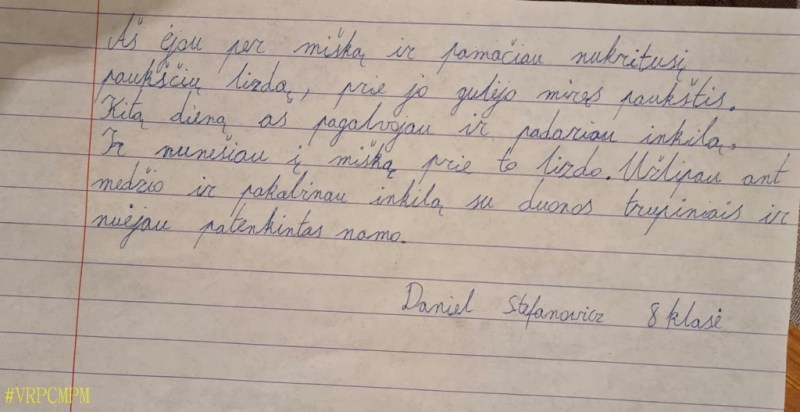 Aš ėjau per mišką ir pamačiau nukritusį
paukščių lizdą, prie jo gulėjo miręs paukštis.
Kitą dieną as pagalvojau ir padariau inkilą.
Ir nunešiau į mišką prie to lizdo. Užlipau ant
medžio ir pakabinau inkilą su duonos trupiniais ir
nuėjau patenkintas namo.
Daniel Stefanovicz 8 klasė
#VRPCMPM